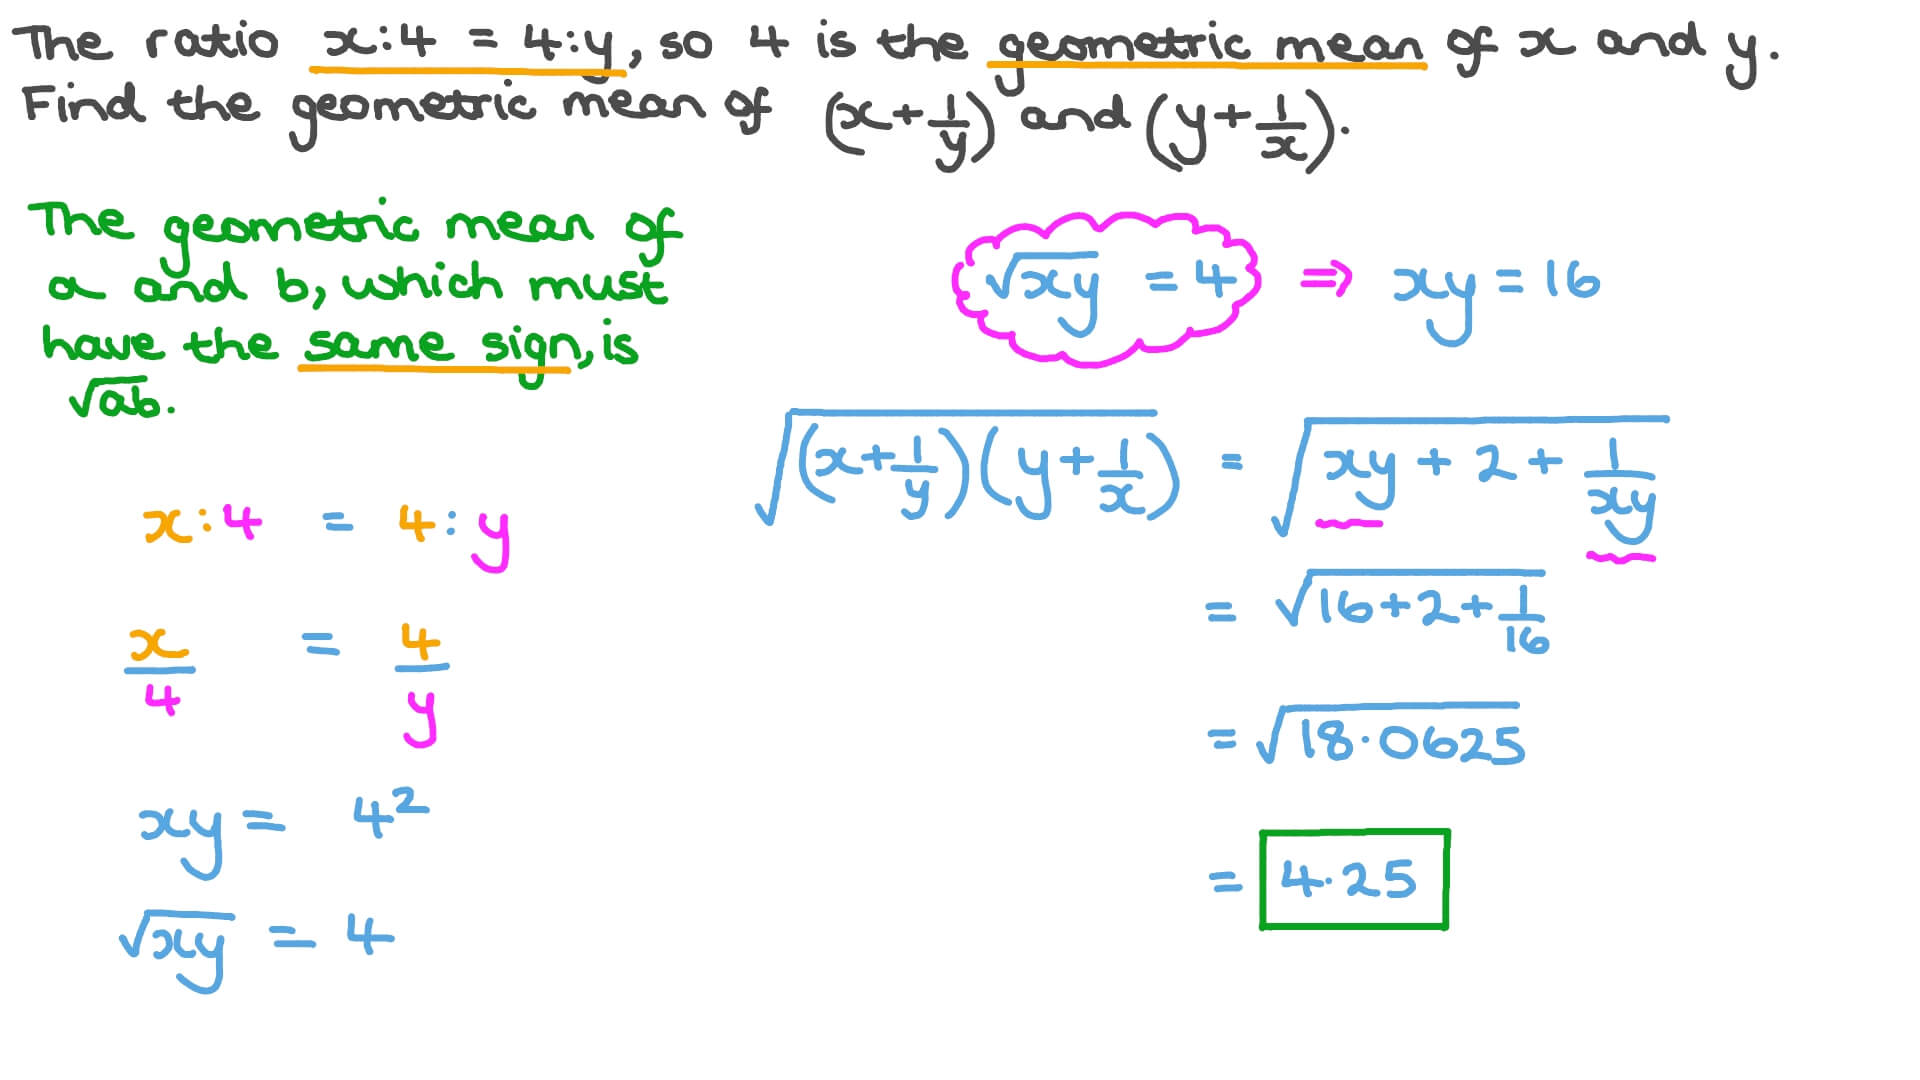 The ratio x:4 = 4:y, so 4 is the geometric mean of x and y.
Find the geometric mean of (x+1/y) and (y+1/x).
The geometric mean of
a and b, which must
have the same sign, is
√ab.
x:4 = 4:y
x/4 = 4/y
xy = 4²
√xy = 4
√xy = 4 ⇒ xy = 16
√(x+1/y)(y+1/x) = √xy + 2 + 1/xy
= √16+2+1/16
= √18·0625
= 4·25